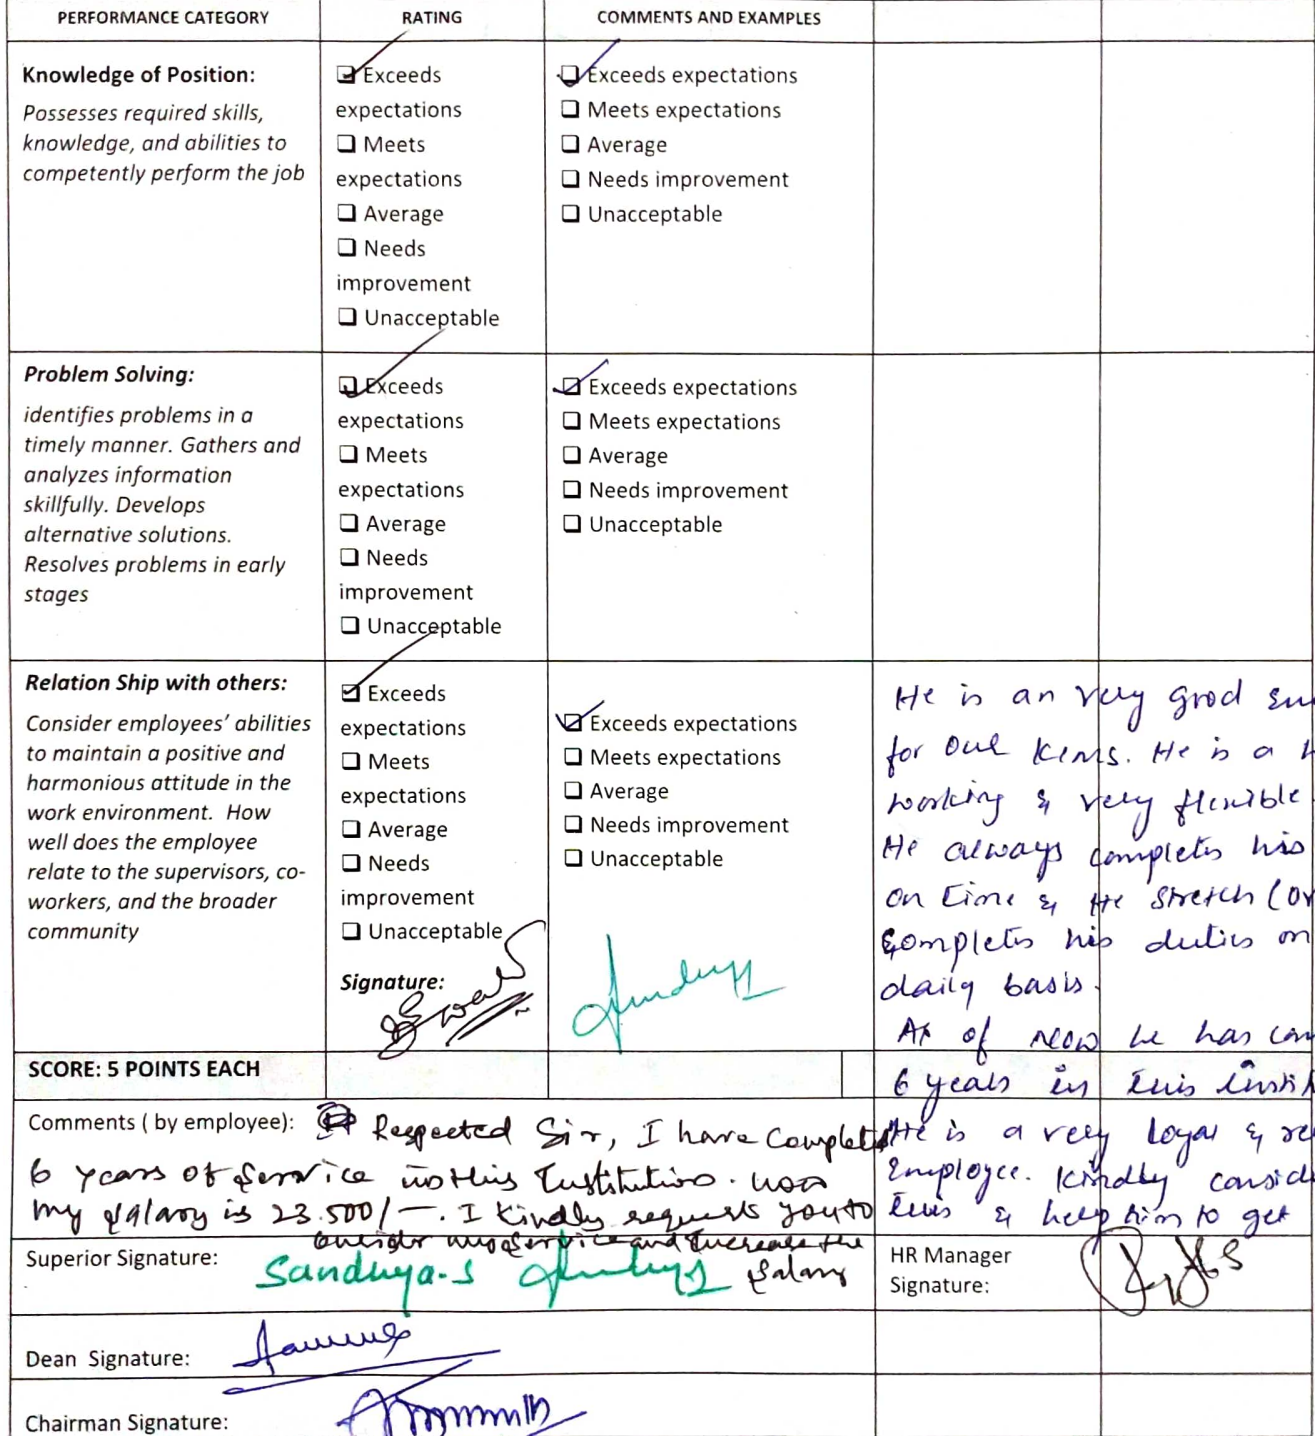 PERFORMANCE CATEGORY RATING COMMENTS AND EXAMPLES
Knowledge of Position:
Possesses required skills,
knowledge, and abilities to
competently perform the job
Exceeds
expectations
Meets
expectations
Average
Needs
improvement
Unacceptable
Exceeds expectations
Meets expectations
Average
Needs improvement
Unacceptable
Problem Solving:
identifies problems in a
timely manner. Gathers and
analyzes information
skillfully. Develops
alternative solutions.
Resolves problems in early
stages
Exceeds
expectations
Meets
expectations
Average
Needs
improvement
Unacceptable
Exceeds expectations
Meets expectations
Average
Needs improvement
Unacceptable
Relation Ship with others:
Consider employees' abilities
to maintain a positive and
harmonious attitude in the
work environment. How
well does the employee
relate to the supervisors, co-
workers, and the broader
community
Exceeds
expectations
Meets
expectations
Average
Needs
improvement
Unacceptable
Signature:
Exceeds expectations
Meets expectations
Average
Needs improvement
Unacceptable
He is an very good
for our Kems. He is a
working & very flexible
He always completes his
on time & He stretch
completes his duties on
daily basis.
As of now he has
6 years in this
He is a very loyal &
Employee. Kindly
this & help him to get
SCORE: 5 POINTS EACH
Comments ( by employee): Respected Sir, I have Completed
6 years of service in this Institution. now
my salary is 23.500/-. I kindly request you to
consider my service and Increase the
salary
Superior Signature: Sandhya.S
HR Manager
Signature:
Dean Signature:
Chairman Signature: